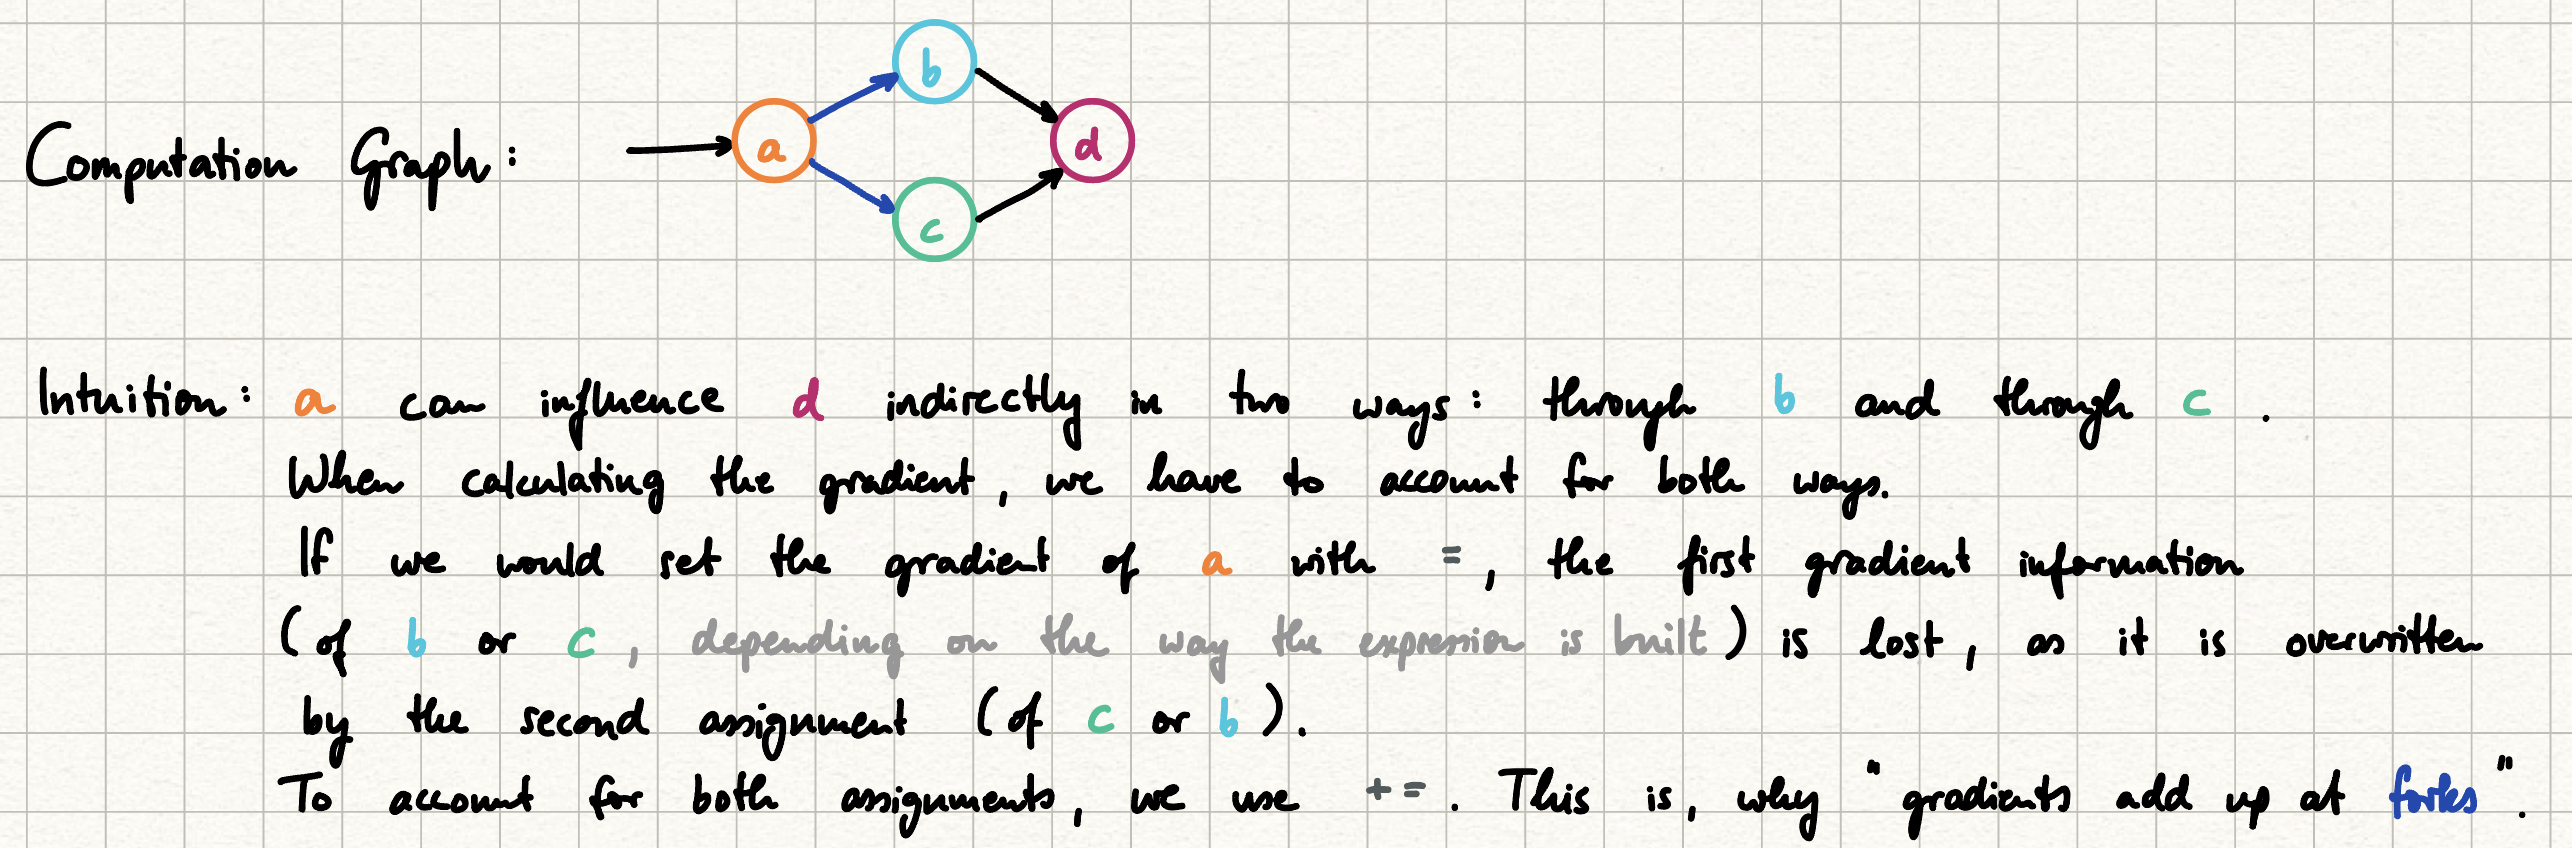 b
Computation Graph: a d
c
Intuition: a can influence d indirectly in two ways: through b and through c.
When calculating the gradient, we have to account for both ways.
If we would set the gradient of a with =, the first gradient information
(of b or c, depending on the way the expression is built) is lost, as it is overwritten
by the second assignment (of c or b).
To account for both assignments, we use +=. This is, why "gradients add up at forks".